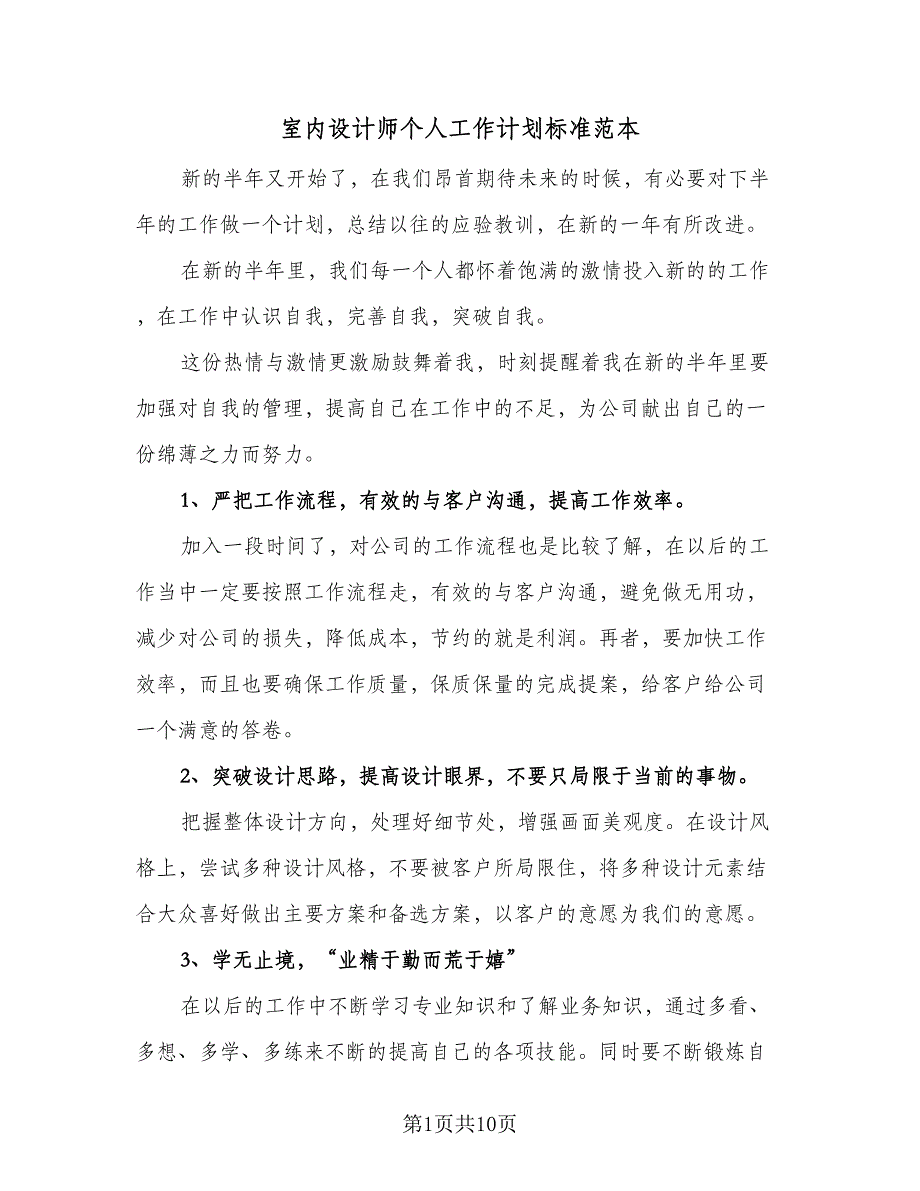 室内设计师个人工作计划标准范本
新的半年又开始了，在我们昂首期待未来的时候，有必要对下半
年的工作做一个计划，总结以往的应验教训，在新的一年有所改进。
在新的半年里，我们每一个人都怀着饱满的激情投入新的的工作
，在工作中认识自我，完善自我，突破自我。
这份热情与激情更激励鼓舞着我，时刻提醒着我在新的半年里要
加强对自我的管理，提高自己在工作中的不足，为公司献出自己的一
份绵薄之力而努力。
1、严把工作流程，有效的与客户沟通，提高工作效率。
加入一段时间了，对公司的工作流程也是比较了解，在以后的工
作当中一定要按照工作流程走，有效的与客户沟通，避免做无用功，
减少对公司的损失，降低成本，节约的就是利润。再者，要加快工作
效率，而且也要确保工作质量，保质保量的完成提案，给客户给公司
一个满意的答卷。
2、突破设计思路，提高设计眼界，不要只局限于当前的事物。
把握整体设计方向，处理好细节处，增强画面美观度。在设计风
格上，尝试多种设计风格，不要被客户所局限住，将多种设计元素结
合大众喜好做出主要方案和备选方案，以客户的意愿为我们的意愿。
3、学无止境，“业精于勤而荒于嬉”
在以后的工作中不断学习专业知识和了解业务知识，通过多看、
多想、多学、多练来不断的提高自己的各项技能。同时要不断锻炼自
第1页共10页